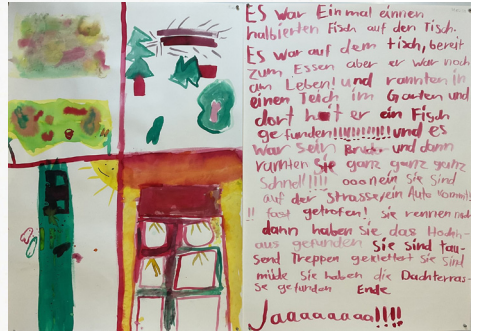 ES WAR Einmal einnen
halbierten Fisch auf den Tisch.
Es war auf dem tisch, bereit
zum Essen aber er war noch
am Leben! und rannten in
einen Teich im Garten und
dort hat er ein Fisch
gefunden!!!!!!!!!!! und es
war sein Bruder und dann
rannten Sie ganz ganz ganz
Schnel!!!! ooo nein sie sind
auf der Strasse ein Auto kommt!
!! fast getrofen! sie rennen
dann haben Sie das Hochh-
aus gefunden Sie sind tau-
send Treppen geklettert sie sind
müde Sie haben die Dachterras-
se gefunden Ende
Jaaaaaaaa!!!!